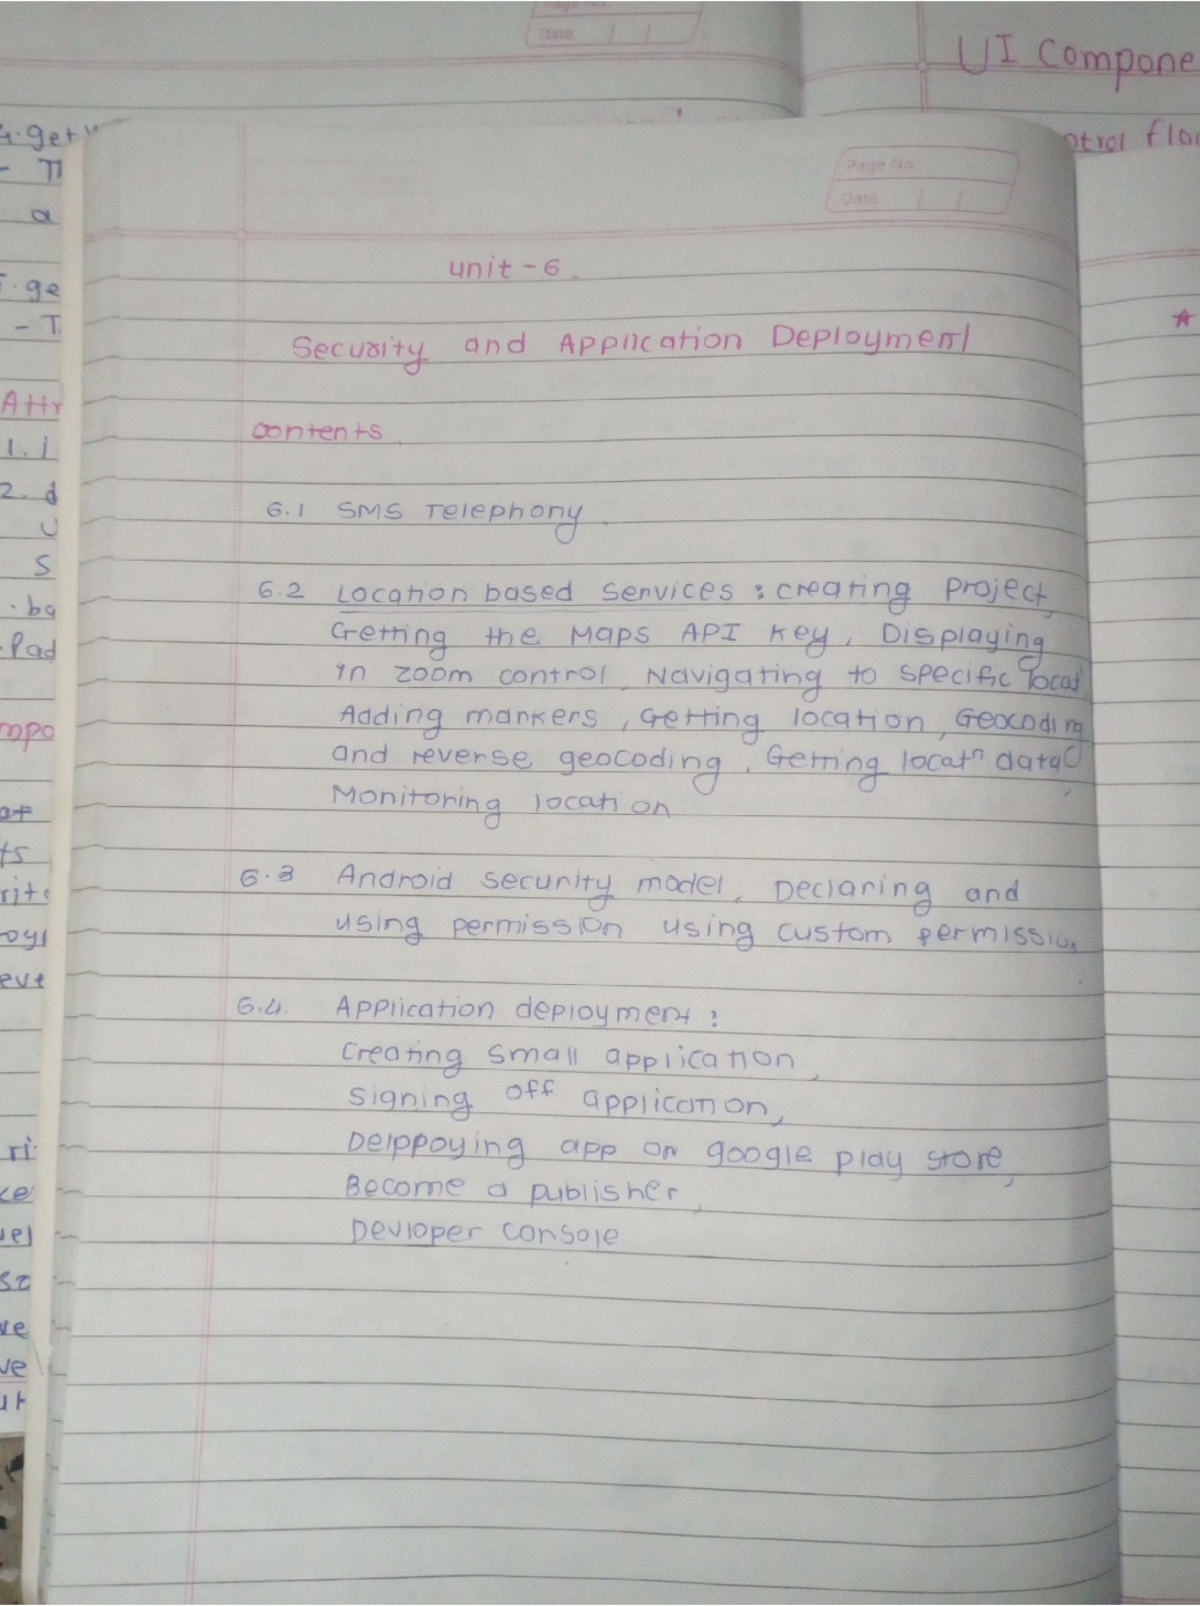 Page No.
Date
UI Compone
ntrol flo
4. get
- Th
a
- T
Attr
1. i
2. d
u
s
Pad
mpo
ts
eve
ri
ve
ve
Page No.
Date
unit - 6.
Security and Application Deployment
contents.
6.1 SMS Telephony.
6.2 Location based services : creating project,
Getting the Maps API Key, Displaying
in zoom control, Navigating to specific locat
Adding markers, Getting location, Geocoding
and reverse geocoding, Getting locatn data,
Monitoring location
6.3 Android security model, Declaring and
using permission using custom permission
6.4. Application deployment :
Creating small application,
signing off application,
Delppoying app on google play store,
Become a publisher,
Devloper console